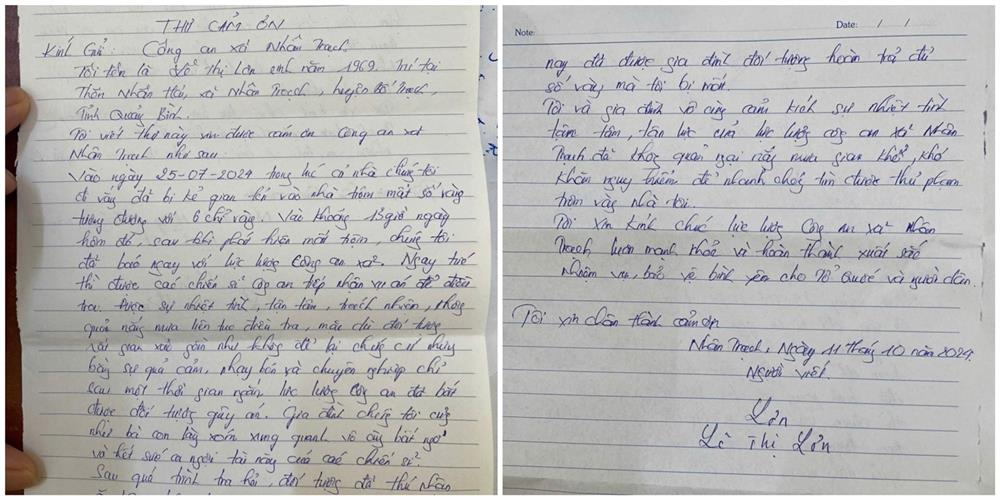 THƯ CẢM ƠN
Kính Gửi: Công an xã Nhân Trạch
Tôi tên là Lê Thị Lớn sinh năm 1969. Trú tại
Thôn Nhân Hải, xã Nhân Trạch, huyện Bố Trạch,
Tỉnh Quảng Bình.
Tôi viết thư này xin được cám ơn Công an xã
Nhân Trạch như sau
Vào ngày 25-07-2024 trong lúc cả nhà chúng tôi
đi vắng đã bị kẻ gian lẻn vào nhà trộm mất số vàng
tương đương với 6 chỉ vàng. Vào khoảng 13 giờ ngày
hôm đó, sau khi phát hiện mất trộm, chúng tôi
đã báo ngay với lực lượng Công an xã. Ngay tức
thì được các chiến sĩ Công an tiếp nhận vụ án để điều
tra. Được sự nhiệt tình, tận tâm, trách nhiệm, không
quản nắng mưa liên tục điều tra, mặc dù đối tượng
rất gian xảo gần như không để lại chứng cứ nhưng
bằng sự quả cảm, nhạy bén và chuyên nghiệp chỉ
sau một thời gian ngắn lực lượng công an đã bắt
được đối tượng gây án. Gia đình chúng tôi cũng
như bà con làng xóm xung quanh vô cùng bất ngờ
và hết sức ca ngợi tài năng của các chiến sĩ.
Sau quá trình tra hỏi, đối tượng đã thú nhận
Note:
Date: / /
nay đã được gia đình đối tượng hoàn trả đủ
số vàng mà tôi bị mất.
Tôi và gia đình vô cùng cảm kích sự nhiệt tình
tận tâm, tận lực của lực lượng công an xã Nhân
Trạch đã không quản ngại nắng mưa gian khổ, khó
khăn nguy hiểm để nhanh chóng tìm được thủ phạm
trộm vàng nhà tôi.
Tôi xin kính chúc lực lượng Công an xã Nhân
Trạch luôn mạnh khỏe và hoàn thành xuất sắc
nhiệm vụ, bảo vệ bình yên cho Tổ Quốc và người dân.
Tôi xin chân thành cảm ơn
Nhân Trạch, Ngày 11 tháng 10 năm 2024
Người viết
Lớn
Lê Thị Lớn